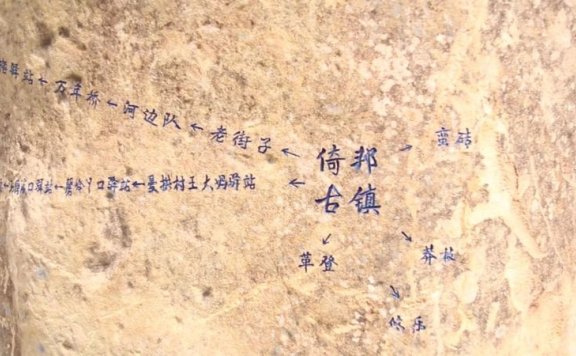 驿站←万年桥←河边队←老街子←
倚邦
古镇
→蛮砖
驿站←曼拱村王大妈驿站←
↙
革登
↘
莽枝
↘
攸乐